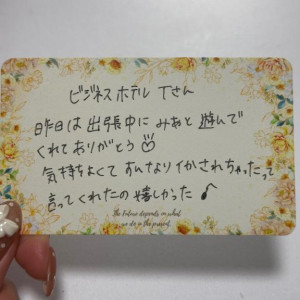 ビジネスホテル Tさん
昨日は出張中にみぁと遊んで
くれてありがとう
気持ちよくて おんなりイかされちゃったって
言ってくれたの嬉しかった
The Future depends on what
we do in the present.